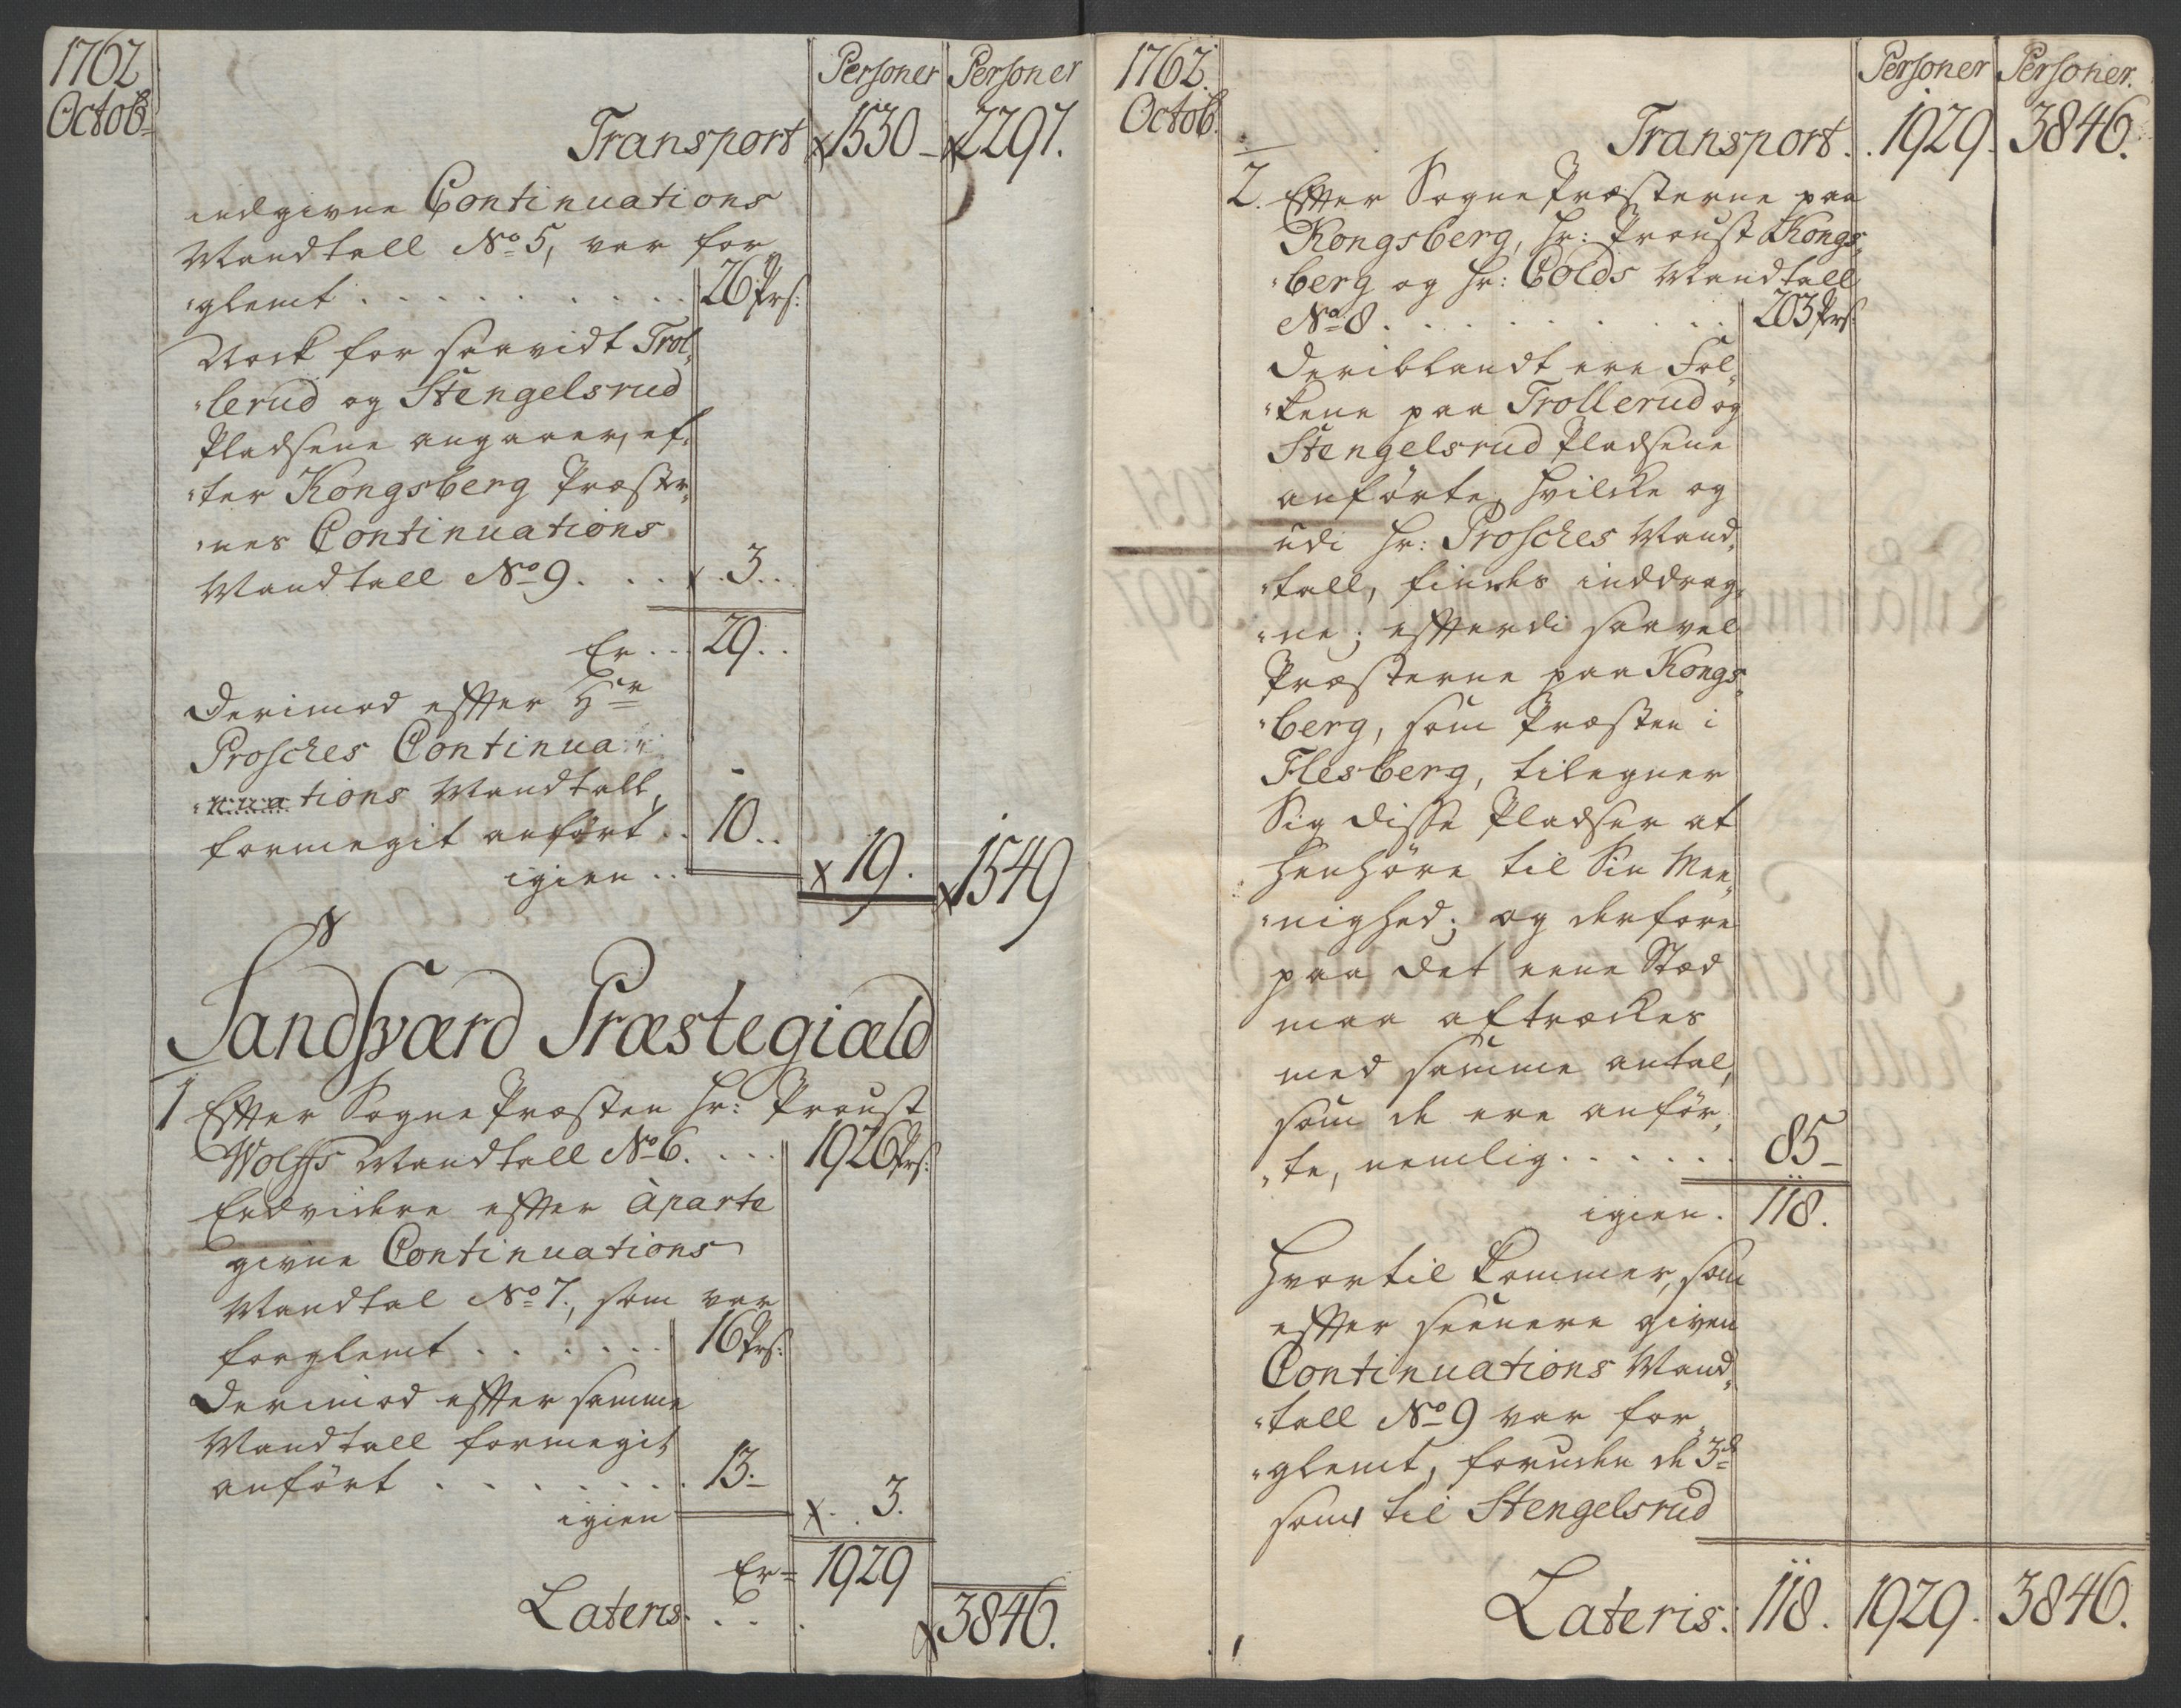 1762
Octob:
Personer Personer
Transport x1530 - x2297.
indgivne Continuations
Mandtall No 5, var for
"glemt . . . . . . . . . 26 Prs:
Nock for saavidt Trol„
"lerud og Stengelsrud
Pladsene angaaer, ef„
"ter Kongsberg Præster„
"nes Continuations
Mandtall No 9. . . . x . 3 . .
Er . . 29 . .
Derimod efter Hr
Prosches Continua„
"nuations Mandtall,
formegit anført . . 10 . .
igien . . x 19. x1549
Sandsværd Præstegiæld
1 Efter Sogne Præsten Hr: Proust
Wolffs Mandtall No 6. . . . 1926 Prs:
Endvidere efter àparte
givne Continuations
Mandtal No 7., som var
forglemt . . . . . . 16 Prs:
Derimod efter samme
Mandtall formegit
anført . . . . . . . 13.-
igien x . . 3.
Er = 1929
Lateris . . . x3846.
1762.
Octob.
Personer Personer.
Transport . . 1929. 3846.
2. Efter Sogne Præsterne paa
Kongsberg, Hr: Proust Kongs„
"berg og Hr: Colds Mandtall
No 8 . . . . . . . . . . 203 Prs:
Deriblandt ere Fol„
"kene paa Trollerud og
Stengelsrud Pladsene
anførte, hvilcke og
udi Hr: Prosches Mand„
"tall, findes inddrag„
"ne; efterdi saavel
Præsterne paa Kongs„
"berg, som Præsten i
Flesberg, tilegner
Sig disse Pladser at
henhöre til Sin Mee„
"nighed; og derfore
paa det eene Stæd
maa aftrækkes
med samme antal,
som de ere anför„
"te, nemlig . . . . . . 85 -
igien . 118.
Hvortil kommer, som
efter seenere given
Continuations Mand„
"tall No 9 var for„
"glemt, foruden de 3de
som til Stengelsrud
Lateris: 118. 1929. 3846.